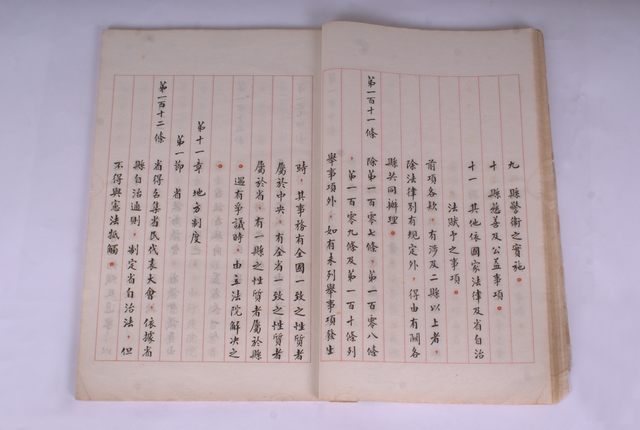 九　縣警衛之實施。
十　縣慈善及公益事項。
十一　其他依國家法律及省自治
法賦予之事項。
前項各款，有涉及二縣以上者，
除法律別有規定外，得由有關各
縣共同辦理。
第一百十一條　除第一百零七條，第一百零八條
，第一百零九條及第一百十條列
舉事項外，如有未列舉事項發生
時，其事務有全國一致之性質者
屬於中央，有全省一致之性質者
屬於省，有一縣之性質者屬於縣
。遇有爭議時，由立法院解決之
。
第十一章　地方制度
第一節　省
第一百十二條　省得召集省民代表大會，依據省
縣自治通則，制定省自治法，但
不得與憲法抵觸。